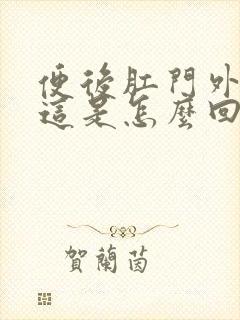 便後肛門外
這是怎麼回
賀蘭茵